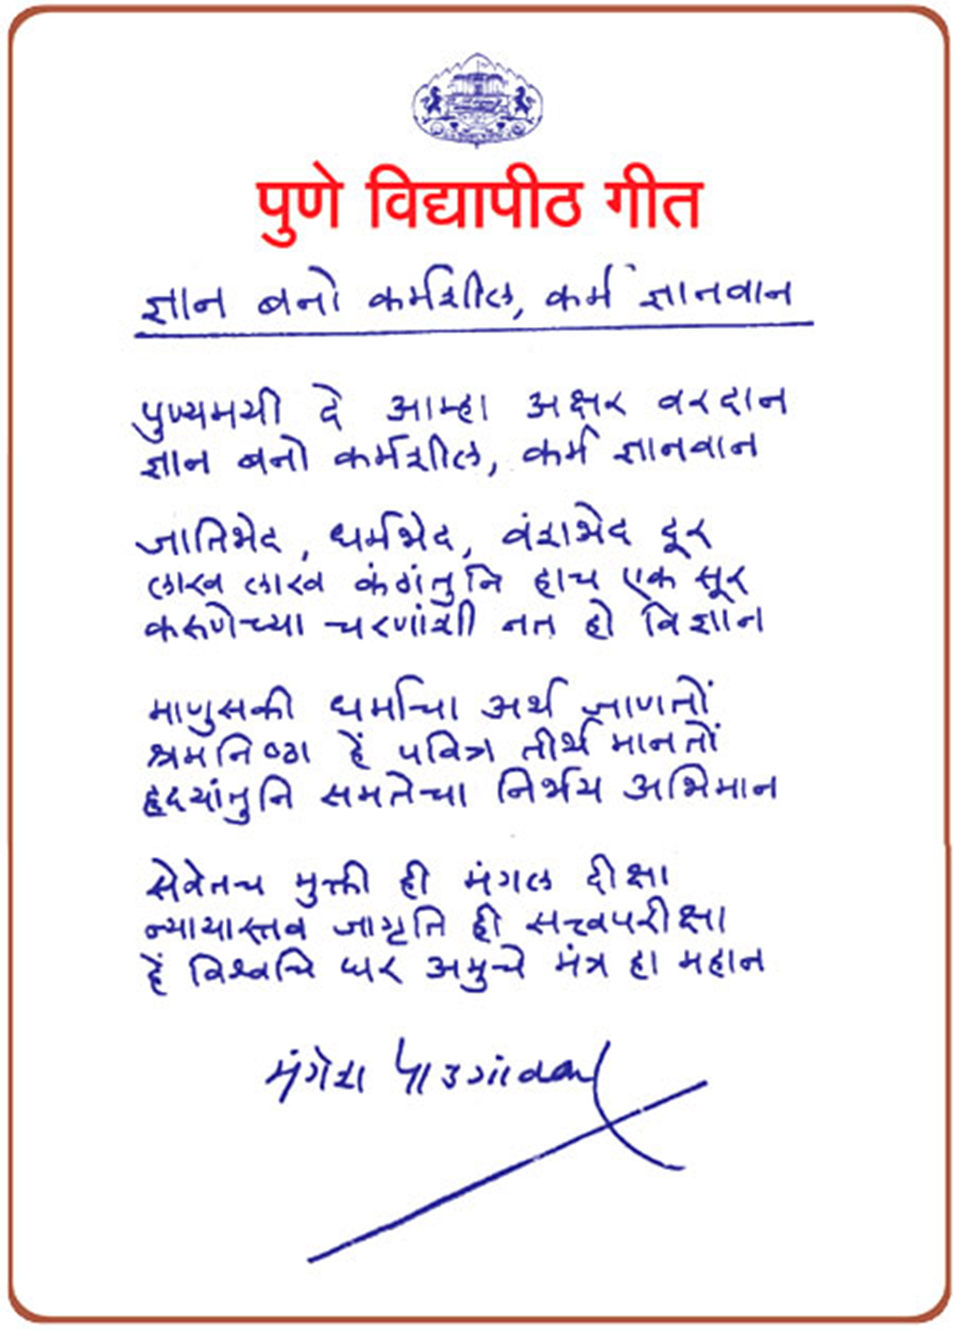 पुणे विद्यापीठ गीत
ज्ञान बनो कर्मशील, कर्म ज्ञानवान
पुण्यमयी दे आम्हा अक्षर वरदान
ज्ञान बनो कर्मशील, कर्म ज्ञानवान
जातिभेद, धर्मभेद, वंशभेद दूर
लाख लाख कंठांतुनि हाच एक सूर
करुणेच्या चरणांशी नत हो विज्ञान
माणुसकी धर्माचा अर्थ जाणतों
श्रमनिष्ठा हें पवित्र तीर्थ मानतों
हृदयांतुनि समतेचा निर्भय अभिमान
सेवेतच मुक्ती ही मंगल दीक्षा
न्यायास्तव जागृति ही सत्त्वपरीक्षा
हें विश्वचि घर अमुचे मंत्र हा महान
मंगेश पाडगांवकर